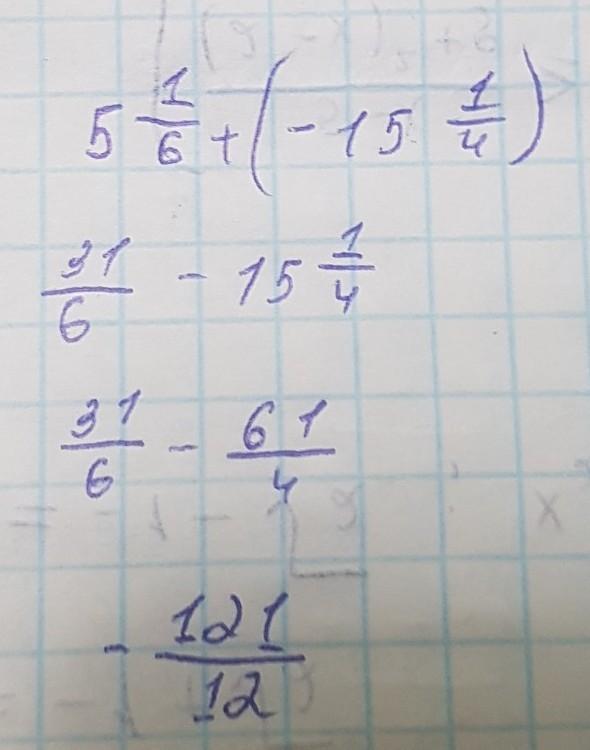 5 1/6 + (- 15 1/4)
31/6 - 15 1/4
31/6 - 61/4
- 121/12